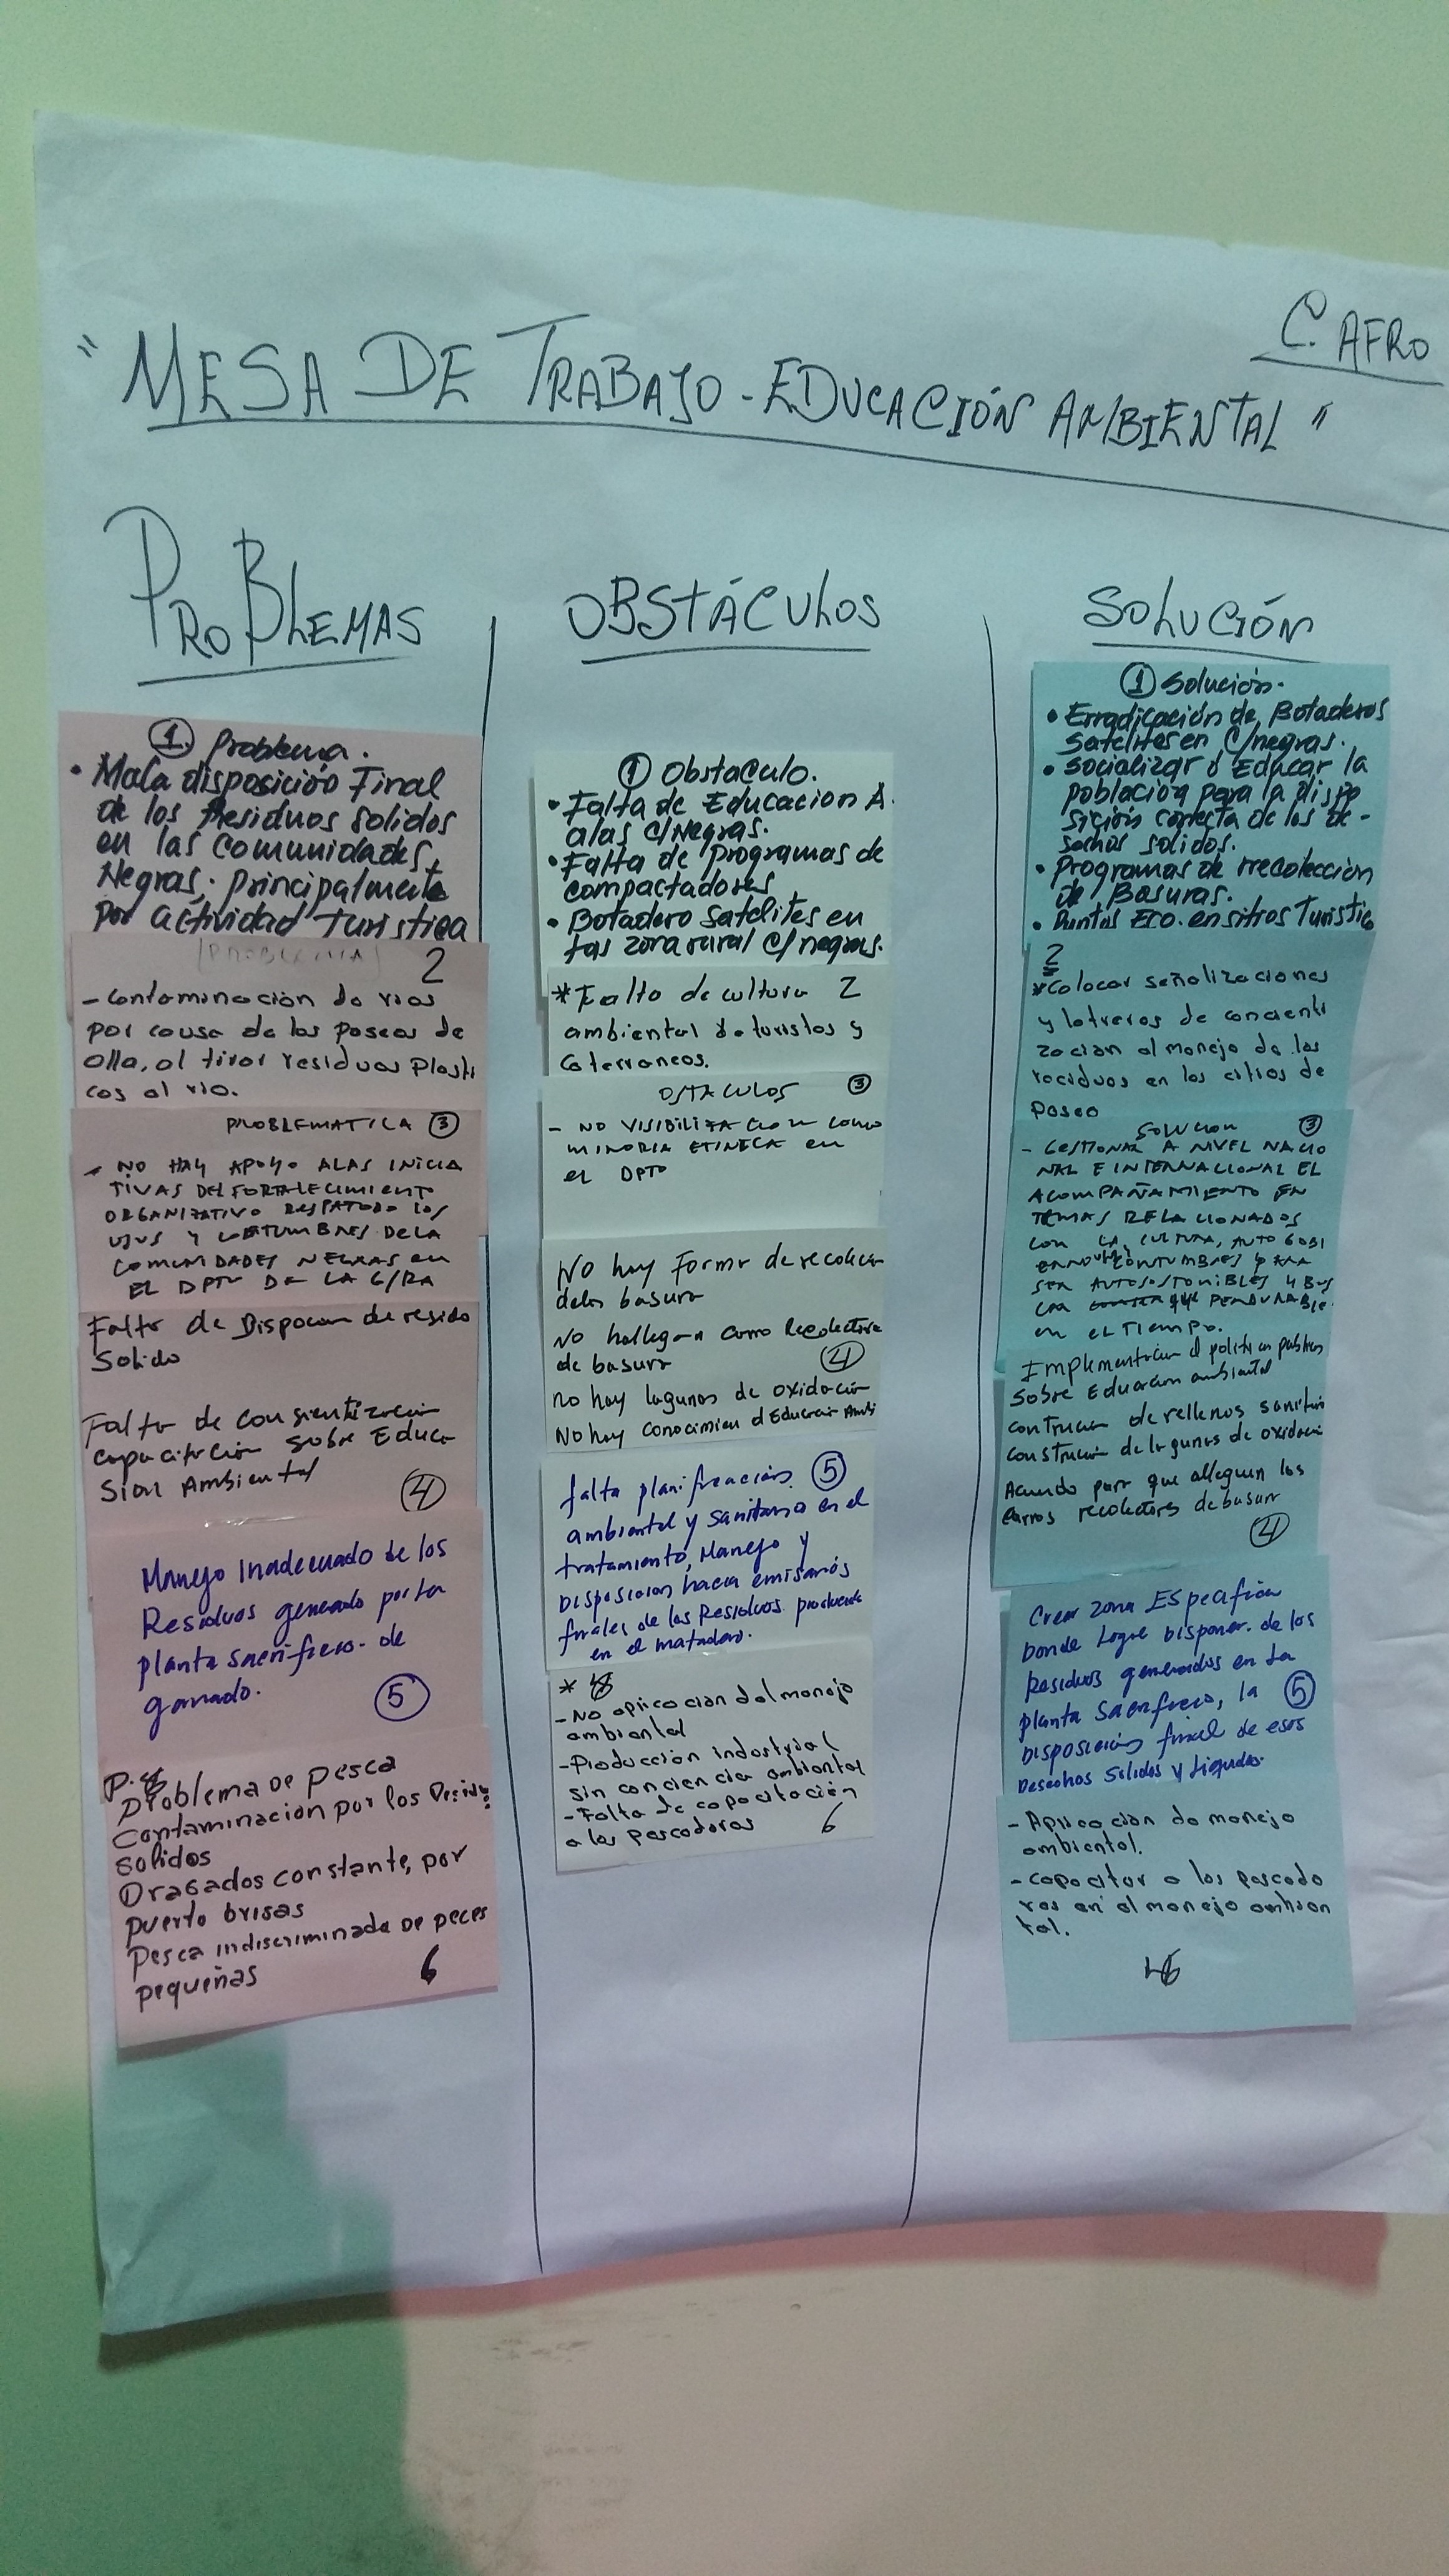 C. AFRO
"MESA DE TRABAJO - EDUCACIÓN AMBIENTAL"
PROBLEMAS
① Problema.
• Mala disposición Final
de los Residuos solidos
en las Comunidades
Negras; principalmente
por actividad Turistica
(PROBLEMA) 2
- Contaminación de rios
por causa de los paseos de
olla, al tirar residuos Plasti
cos al rio.
PROBLEMATICA ③
- NO HAY APOYO ALAS INICIA
TIVAS DEL FORTALECIMIENTO
ORGANIZATIVO LOS
USOS Y COSTUMBRES DE LA
COMUNIDADES NEGRAS en
EL DPTO DE LA G/RA
Falta de Disposcion de resido
Solido
Falta de Consientizacion
capacitacion sobre Educa
Sion Ambiental
④
Manejo Inadecuado de los
Residuos generado por la
planta sacrificio de
ganado. ⑤
Problema De pesca
Contaminacion por los
solidos
Dragados constante, por
puerto brisas
Pesca indiscriminada De peces
pequeñas 6
OBSTÁCULOS
① Obstaculo.
• Falta de Educacion A.
alas C/Negras.
• Falta de programas de
compactadores
• Botadero Satelites en
las zona rural C/negras.
* Falta de cultura 2
ambiental de turistas y
Coterraneos.
OSTACULOS ③
- NO VISIBILIZACION como
MINORIA ETINECA en
el DPTO
No hay Forma de recoleccion
delas basura
No hallegan carro Recolectore
de basura ④
no hay lagunas de oxidación
No hay conocimien d Educacion Ambi
falta planificación ⑤
ambiental y sanitaria en el
tratamiento, Manejo y
Disposicion hacia emisarios
finales de los Residuos producido
en el matadero.
*
- No aplicacion del manejo
ambiental
- Producción industrial
sin conciencia ambiental
- Falta de capacitación
a los Pescadores 6
SOLUCIÓN
① Solución.
• Erradicación de Botaderos
Satelites en C/negras.
• Socializar o Educar la
población para la dispo
sición correcta de los de-
sechos solidos.
• Programas de rrecoleccion
de Basuras.
• Puntos Eco. en sitios Turistic
2
* Colocar señalizaciones
y lotreros de concienti
zacion al manejo de los
reciduos en los citios de
paseo
Solucion ③
- GESTIONAR A NIVEL NACIO
NAL E INTERNACIONAL EL
ACOMPAÑAMIENTO EN
TEMAS RELACIONADOS
CON LA CULTURA, AUTO GOBI
COSTUMBRES PARA
SER AUTOSOSTONIBLES Y BUS
CAR QUE PERDURABLE
en el TIEMPO.
Implementacion d politicas publicas
Sobre Educacion ambiental
Contrucion de rellenos sanitario
Construcion de lagunas de oxidacion
Acuerdo para que alleguen los
carros recolectores de basura
④
Crear zona Especifica
donde logre Disponer de los
Residuos generados en la
planta Sacrificio, la ⑤
Disposicion final de esos
Desechos Solidos y Liquidos.
- Aplicacion de manejo
ambiental.
- Capacitar a los pescado
res en el manejo ambien
tal.
6